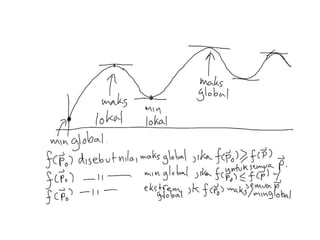 maks
lokal
min
lokal
maks
global
min global
f(p⃗₀) disebut nilai maks global jika f(p⃗₀) ≥ f(p⃗)
untuk semua p⃗.
f(p⃗₀) —||— min global jika f(p⃗₀) ≤ f(p⃗) ~
semua p⃗
f(p⃗₀) —||— ekstrem global jk f(p⃗₀) maks/min global